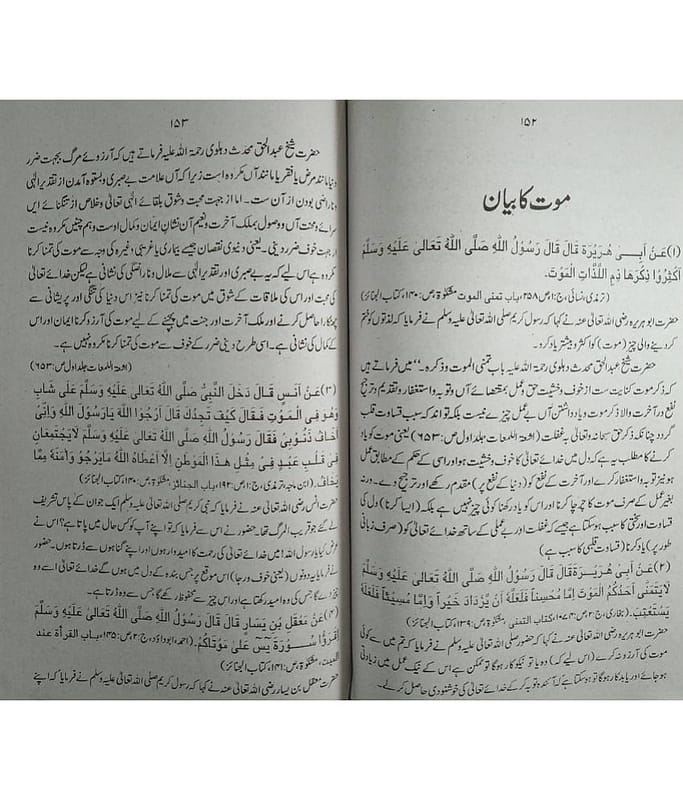 ۱۵۲
موت کا بیان
(۱) عَنْ أَبِی هُرَيْرَةَ قَالَ قَالَ رَسُوْلُ اللّٰهِ صَلَّى اللّٰهُ تَعَالٰى عَلَيْهِ وَسَلَّمَ
اَكْثِرُوْا ذِكْرَ هَاذِمِ اللَّذَّاتِ الْمَوْتَ.
(ترمذی، نسائی، ج:۱ص:۲۵۸، باب تمنی الموت مشکوٰۃ، ص:۱۴۰، کتاب الجنائز)
حضرت ابوہریرہ رضی اللہ تعالیٰ عنہ نے کہا کہ رسول کریم صلی اللہ تعالیٰ علیہ وسلم نے فرمایا کہ لذتوں کو ختم
کر دینے والی چیز (موت) کو اکثر و بیشتر یاد کرو۔
حضرت شیخ عبدالحق محدث دہلوی رحمۃ اللہ علیہ باب تمنی الموت وذکرہ۔ ''میں فرماتے ہیں
کہ ذکر موت کنایت ست از خوف و خشیت حق و عمل بمقتضائے آں و توبہ و استغفار و تقدیم و ترجیح
نفع در آخرت والا ذکر موت و یاد داشتن آں بے عمل چیزے نیست بلکہ تواند کہ سبب قساوت قلب
گردد چنانکہ ذکر حق سبحانہ و تعالیٰ بہ غفلت (اشعۃ اللمعات جلد اول ص:۶۵۳) یعنی موت کو یاد
کرنے کا مطلب یہ ہے کہ دل میں خدائے تعالیٰ کا خوف و خشیت ہو اور اسی کے حکم کے مطابق عمل
ہو نیز توبہ و استغفار کرے اور آخرت کے نفع کو (دنیا کے نفع پر) مقدم رکھے اور ترجیح دے۔ ورنہ
بغیر عمل کے صرف موت کا چرچا کرنا اور اس کو یاد رکھنا کوئی چیز نہیں ہے بلکہ (ایسا کرنا) دل کی
قساوت اور سختی کا سبب ہو سکتا ہے جیسے کہ غفلت اور بے عملی کے ساتھ خدائے تعالیٰ کو (صرف زبانی
طور پر) یاد کرنا (قساوت قلبی کا سبب ہے)
(۲) عَنْ أَبِی هُرَيْرَةَ قَالَ قَالَ رَسُوْلُ اللّٰهِ صَلَّى اللّٰهُ تَعَالٰى عَلَيْهِ وَسَلَّمَ
لَا يَتَمَنَّى اَحَدُكُمُ الْمَوْتَ اِمَّا مُحْسِنًا فَلَعَلَّهٗ اَنْ يَّزْدَادَ خَيْرًا وَاِمَّا مُسِيْئًا فَلَعَلَّهٗ
يَسْتَعْتِبَ. (بخاری، ج:۲ص:۱۰۷۴، کتاب التمنی مشکوٰۃ، ص:۱۳۹، کتاب الجنائز)
حضرت ابوہریرہ رضی اللہ تعالیٰ عنہ نے کہا کہ حضور صلی اللہ تعالیٰ علیہ وسلم نے فرمایا کہ تم میں سے کوئی
موت کی آرزو نہ کرے (اس لیے کہ) وہ یا تو نیکوکار ہوگا تو ممکن ہے اس کے نیک عمل میں زیادتی
ہو جائے اور یا بدکار ہوگا تو ہو سکتا ہے کہ آئندہ توبہ کر کے خدائے تعالیٰ کی خوشنودی حاصل کر لے۔
۱۵۳
حضرت شیخ عبدالحق محدث دہلوی رحمۃ اللہ علیہ فرماتے ہیں کہ آرزوئے مرگ بجہت ضرر
دنیا مانند مرض یا فقر یا مانند آں مکروہ است زیرا کہ آں علامت بے صبری و بستوہ آمدن از تقدیر الٰہی
و ناراضی بودن از آن ست۔ اما از جہت محبت و شوق بلقائے الٰہی تعالیٰ و خلاص از تنگنائے ایں
سرائے و محنت آں و وصول بملک آخرت و نعیم آں نشان ایمان و کمال اوست و ہم چنیں مکروہ نیست
از جہت خوف ضرر دینی۔ یعنی دنیوی نقصان جیسے بیماری یا غریبی وغیرہ کی وجہ سے موت کی تمنا کرنا
مکروہ ہے اس لیے کہ یہ بے صبری اور تقدیر الٰہی سے ملال و ناراضگی کی نشانی ہے لیکن خدائے تعالیٰ
کی محبت اور اس کی ملاقات کے شوق میں موت کی تمنا کرنا نیز اس دنیا کی تنگی اور پریشانی سے
چھٹکارا حاصل کرنے اور ملک آخرت اور جنت میں پہنچنے کے لیے موت کی آرزو کرنا ایمان اور اس
کے کمال کی نشانی ہے۔ اسی طرح دینی ضرر کے خوف سے موت کی تمنا کرنا مکروہ نہیں ہے۔
(اشعۃ اللمعات جلد اول ص:۶۵۳)
(۳) عَنْ اَنَسٍ قَالَ دَخَلَ النَّبِيُّ صَلَّى اللّٰهُ تَعَالٰى عَلَيْهِ وَسَلَّمَ عَلٰى شَابٍّ
وَهُوَ فِي الْمَوْتِ فَقَالَ كَيْفَ تَجِدُكَ قَالَ اَرْجُوا اللّٰهَ يَارَسُوْلَ اللّٰهِ وَاِنِّيْ
اَخَافُ ذُنُوْبِيْ فَقَالَ رَسُوْلُ اللّٰهِ صَلَّى اللّٰهُ تَعَالٰى عَلَيْهِ وَسَلَّمَ لَا يَجْتَمِعَانِ
فِيْ قَلْبِ عَبْدٍ فِيْ مِثْلِ هٰذَا الْمَوْطِنِ اِلَّا اَعْطَاهُ اللّٰهُ مَا يَرْجُوْ وَاٰمَنَهٗ مِمَّا
يَخَافُ. (ابن ماجہ، ترمذی، ج:۱ص:۱۹۲، باب الجنائز مشکوٰۃ، ص:۱۴۰)
حضرت انس رضی اللہ تعالیٰ عنہ نے فرمایا کہ نبی کریم صلی اللہ تعالیٰ علیہ وسلم ایک جوان کے پاس تشریف
لے گئے جو قریب المرگ تھا۔ حضور نے اس سے فرمایا کہ تو اپنے آپ کو کس حال میں پاتا ہے؟ اس نے
عرض کیا یا رسول اللہ! میں خدائے تعالیٰ کی رحمت کا امیدوار ہوں اور اپنے گناہوں سے ڈرتا ہوں۔ حضور
نے فرمایا یہ دونوں (یعنی خوف و رجا) اس موقع پر جس بندہ کے دل میں ہوں گے خدائے تعالیٰ اسے وہ
چیز دے گا جس کی وہ امید رکھتا ہے اور اس چیز سے محفوظ رکھے گا جس سے وہ ڈرتا ہے۔
(۴) عَنْ مَعْقِلِ بْنِ يَسَارٍ قَالَ قَالَ رَسُوْلُ اللّٰهِ صَلَّى اللّٰهُ تَعَالٰى عَلَيْهِ وَسَلَّمَ
اِقْرَؤُا سُوْرَةَ يٰسٓ عَلٰى مَوْتَاكُمْ. (احمد، ابوداؤد، ج:۲ص:۴۴۵، باب القرأة عند
المیت، مشکوٰۃ، ص:۱۴۱، کتاب الجنائز)
حضرت معقل بن یسار رضی اللہ تعالیٰ عنہ نے کہا کہ رسول کریم صلی اللہ تعالیٰ علیہ وسلم نے فرمایا کہ اپنے